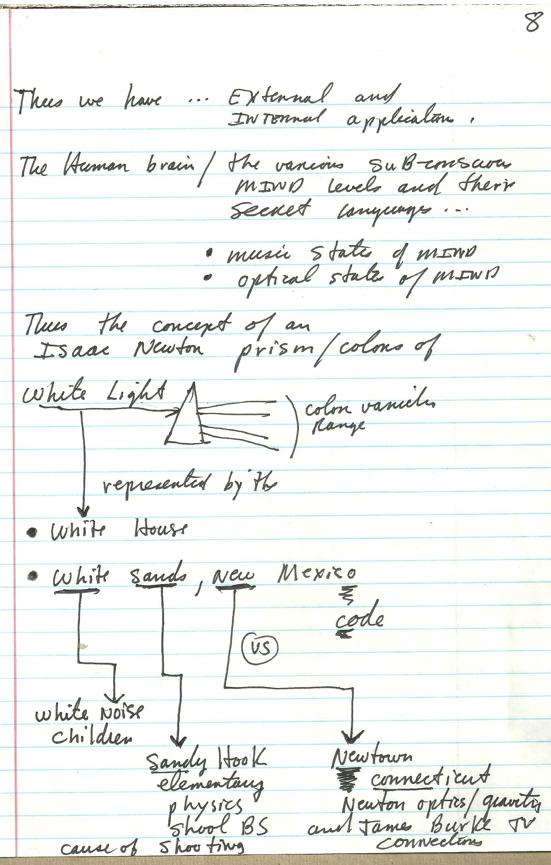 8
Thus we have ... External and
INTernal application.
The Human brain / the various sub-conscious
MIND levels and their
secret languages ...
• music states of MIND
• optical states of MIND
Thus the concept of an
Isaac Newton prism/colors of
White Light
color varieties
Range
represented by the
• White House
• White Sands, New Mexico
code
VS
White Noise
children
Sandy Hook
elementary
physics
shool BS
cause of shooting
Newtown
connecticut
Newton optics/gravity
and James Burke TV
connections